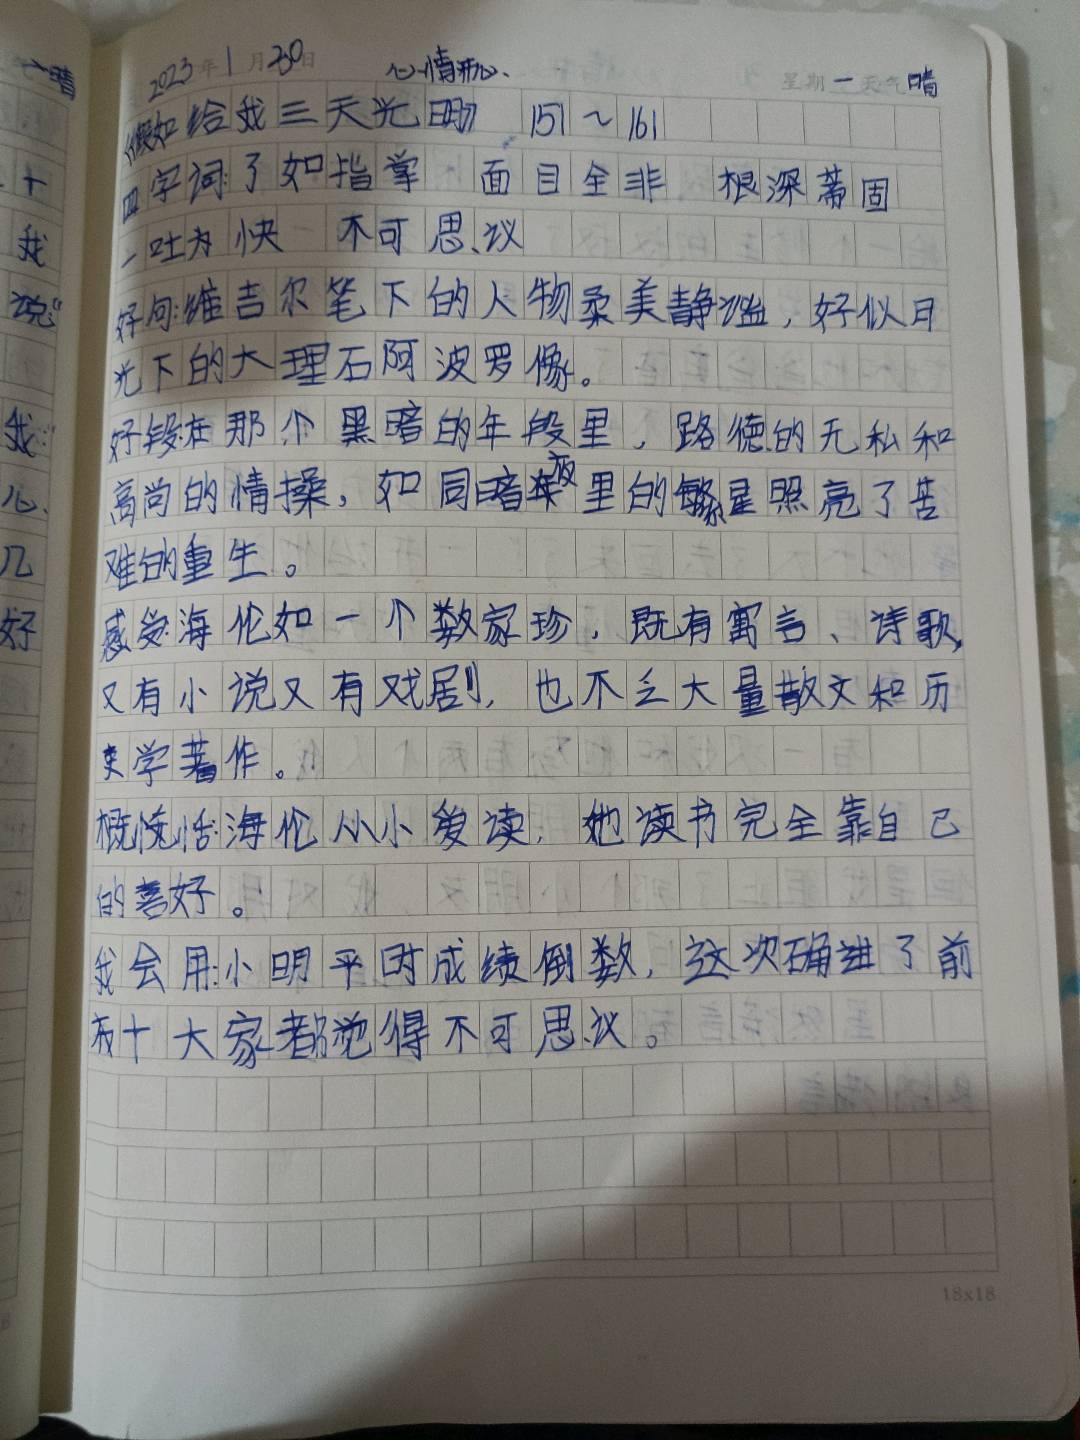 2023年1月30日 心情开心. 星期一天气晴
《假如给我三天光明》 151～161
四字词:了如指掌 面目全非 根深蒂固
一吐为快 不可思议
好句:维吉尔笔下的人物柔美静谧，好似月
光下的大理石阿波罗像。
好段:在那个黑暗的年段里，路德的无私和
高尚的情操，如同暗夜里的繁星照亮了苦
难的重生。
感受:海伦如一个数家珍，既有寓言、诗歌,
又有小说又有戏剧，也不乏大量散文和历
史学著作。
概括:海伦从小爱读，她读书完全靠自己
的喜好。
我会用:小明平时成绩倒数，这次确进了前
十大家都觉得不可思议。
18x18
十
我
说:"
我:"
心.
几
好